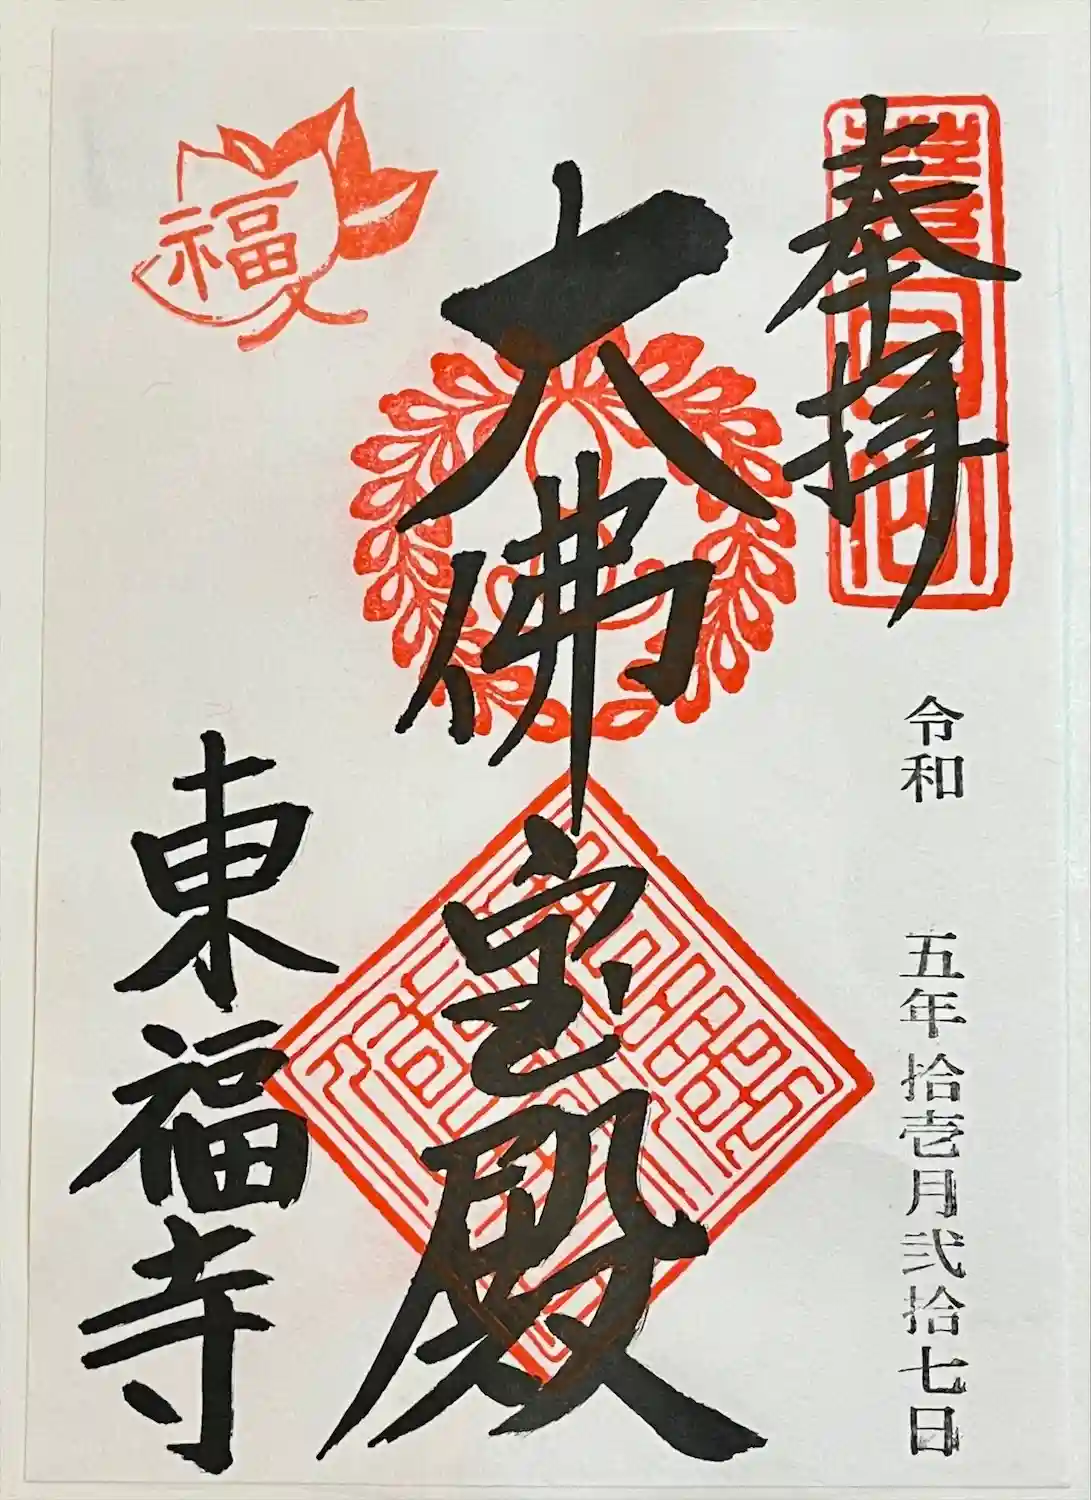 奉拝
令和 五年拾壱月弐拾七日
大佛宝殿
福
東福寺